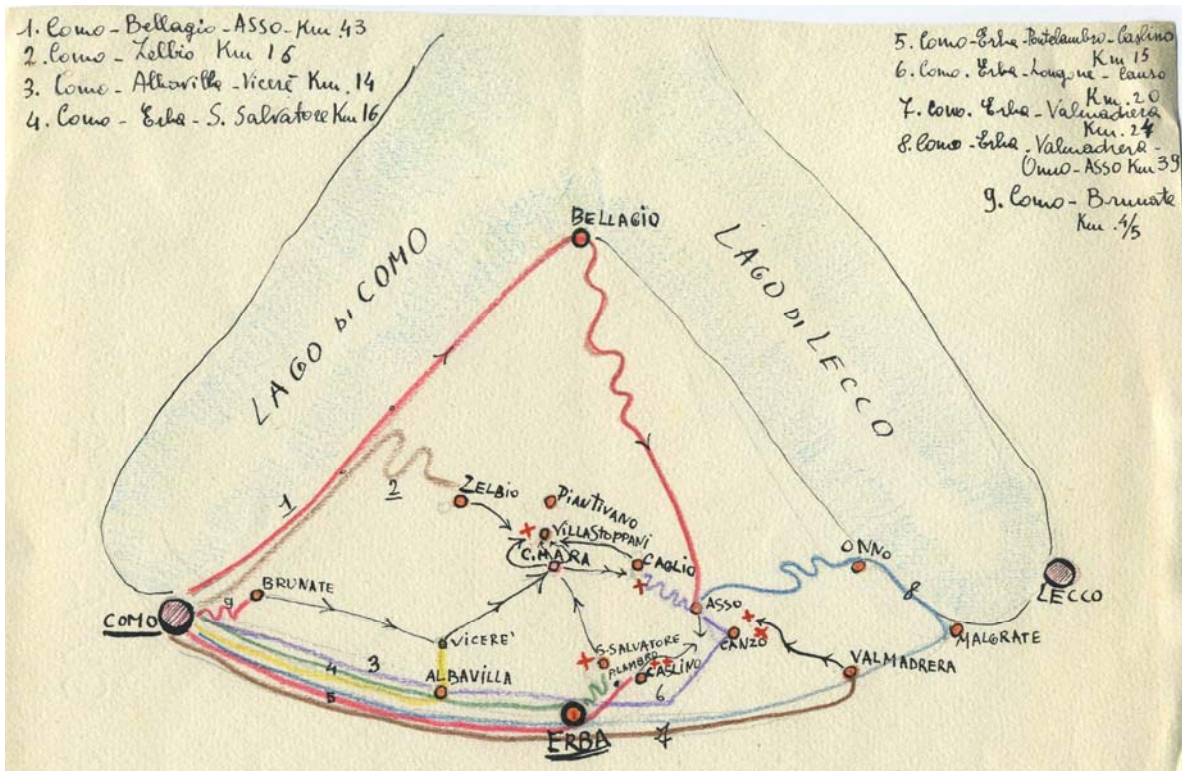 1. Como - Bellagio - ASSO - Km. 43
2. Como - Zelbio Km 16
3. Como - Albavilla - Vicerè Km. 14
4. Como - Erba - S. Salvatore Km 16
5. Como - Erba - Pontelambro - Caslino
Km 15
6. Como. Erba - Longone - Canzo
Km. 20
7. Como. Erba - Valmadrera
Km. 24
8. Como - Erba - Valmadrera -
Onno - Asso Km 39
9. Como - Brunate
Km. 4/5
BELLAGIO
LAGO DI COMO
LAGO DI LECCO
1
2
ZELBIO
PIANTIVANO
VILLA STOPPANI
C. MARA
CAGLIO
ONNO
8
LECCO
BRUNATE
9
COMO
ASSO
CANZO
MALGRATE
VICERE'
S. SALVATORE
P. LAMBRO
CASLINO
VALMADRERA
3
4
5
ALBAVILLA
6
ERBA
7